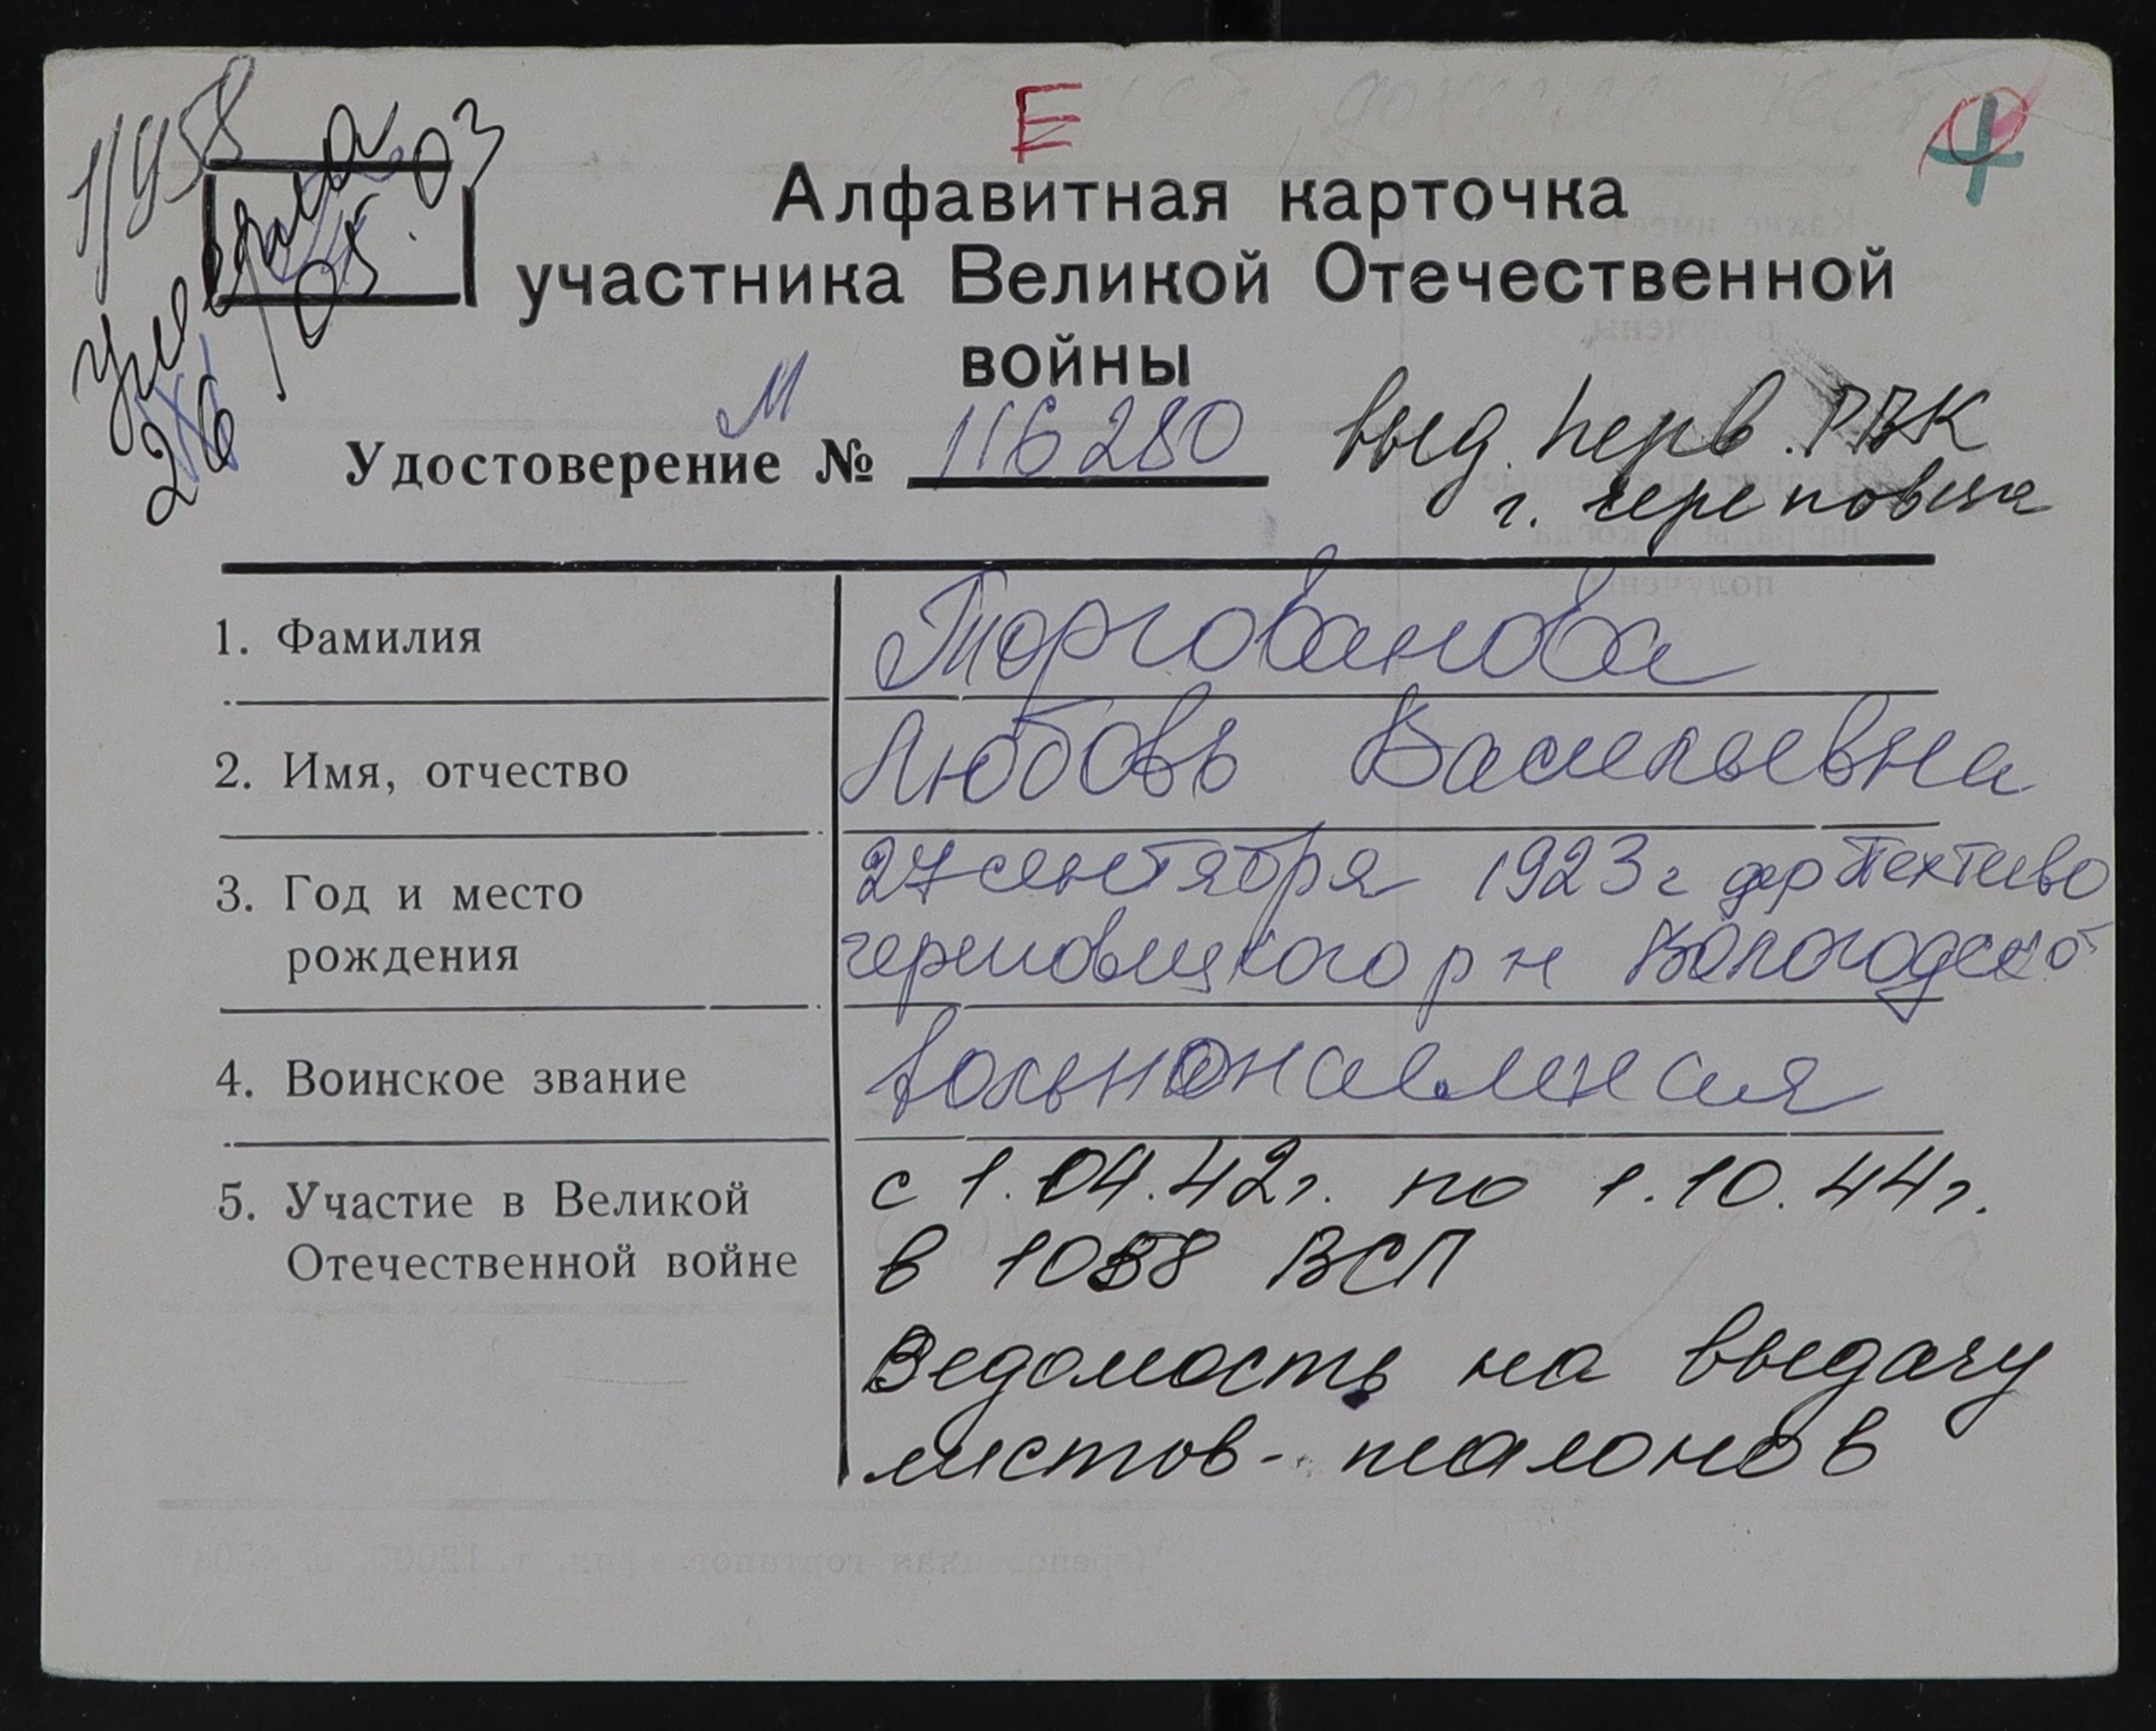 1/958
умерла
26/05.03
Е
Алфавитная карточка
участника Великой Отечественной
войны
М
Удостоверение № 116280
выд. перв. РВК
г. Череповца
1. Фамилия
Торгованова
2. Имя, отчество
Любовь Васильевна
3. Год и место
рождения
27 сентября 1923 г дер
Череповецкого р н Вологодской
4. Воинское звание
вольнонаемная
5. Участие в Великой
Отечественной войне
с 1.04.42г. по 1.10.44г.
в 1058 ВСП
Ведомость на выдачу
листов-талонов